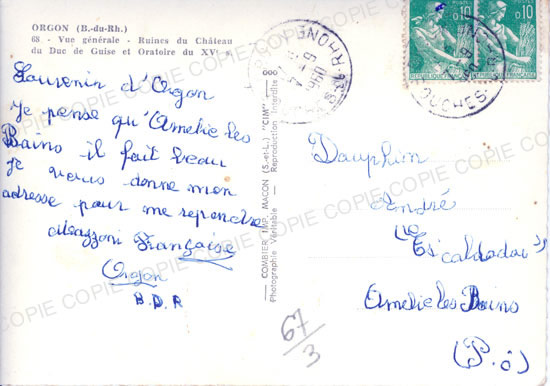 ORGON (B.-du-Rh.)
68 - Vue générale - Ruines du Château
du Duc de Guise et Oratoire du XVe s.
Souvenir d'Orgon
Je pense qu'Amelie les
Bains il fait beau
je vous donne mon
adresse pour me repondre
Mazzoni Française
Orgon
B.D.R
COMBIER IMP. MACON (S.-et-L.) "CIM"
Photographie Véritable - Reproduction Interdite
RHONE
0,10 0,10
Dauphin
André
"Es Caldadou"
Amelie les Bains
(P.O)
67/3
COPIE COPIE COPIE COPIE COPIE COPIE